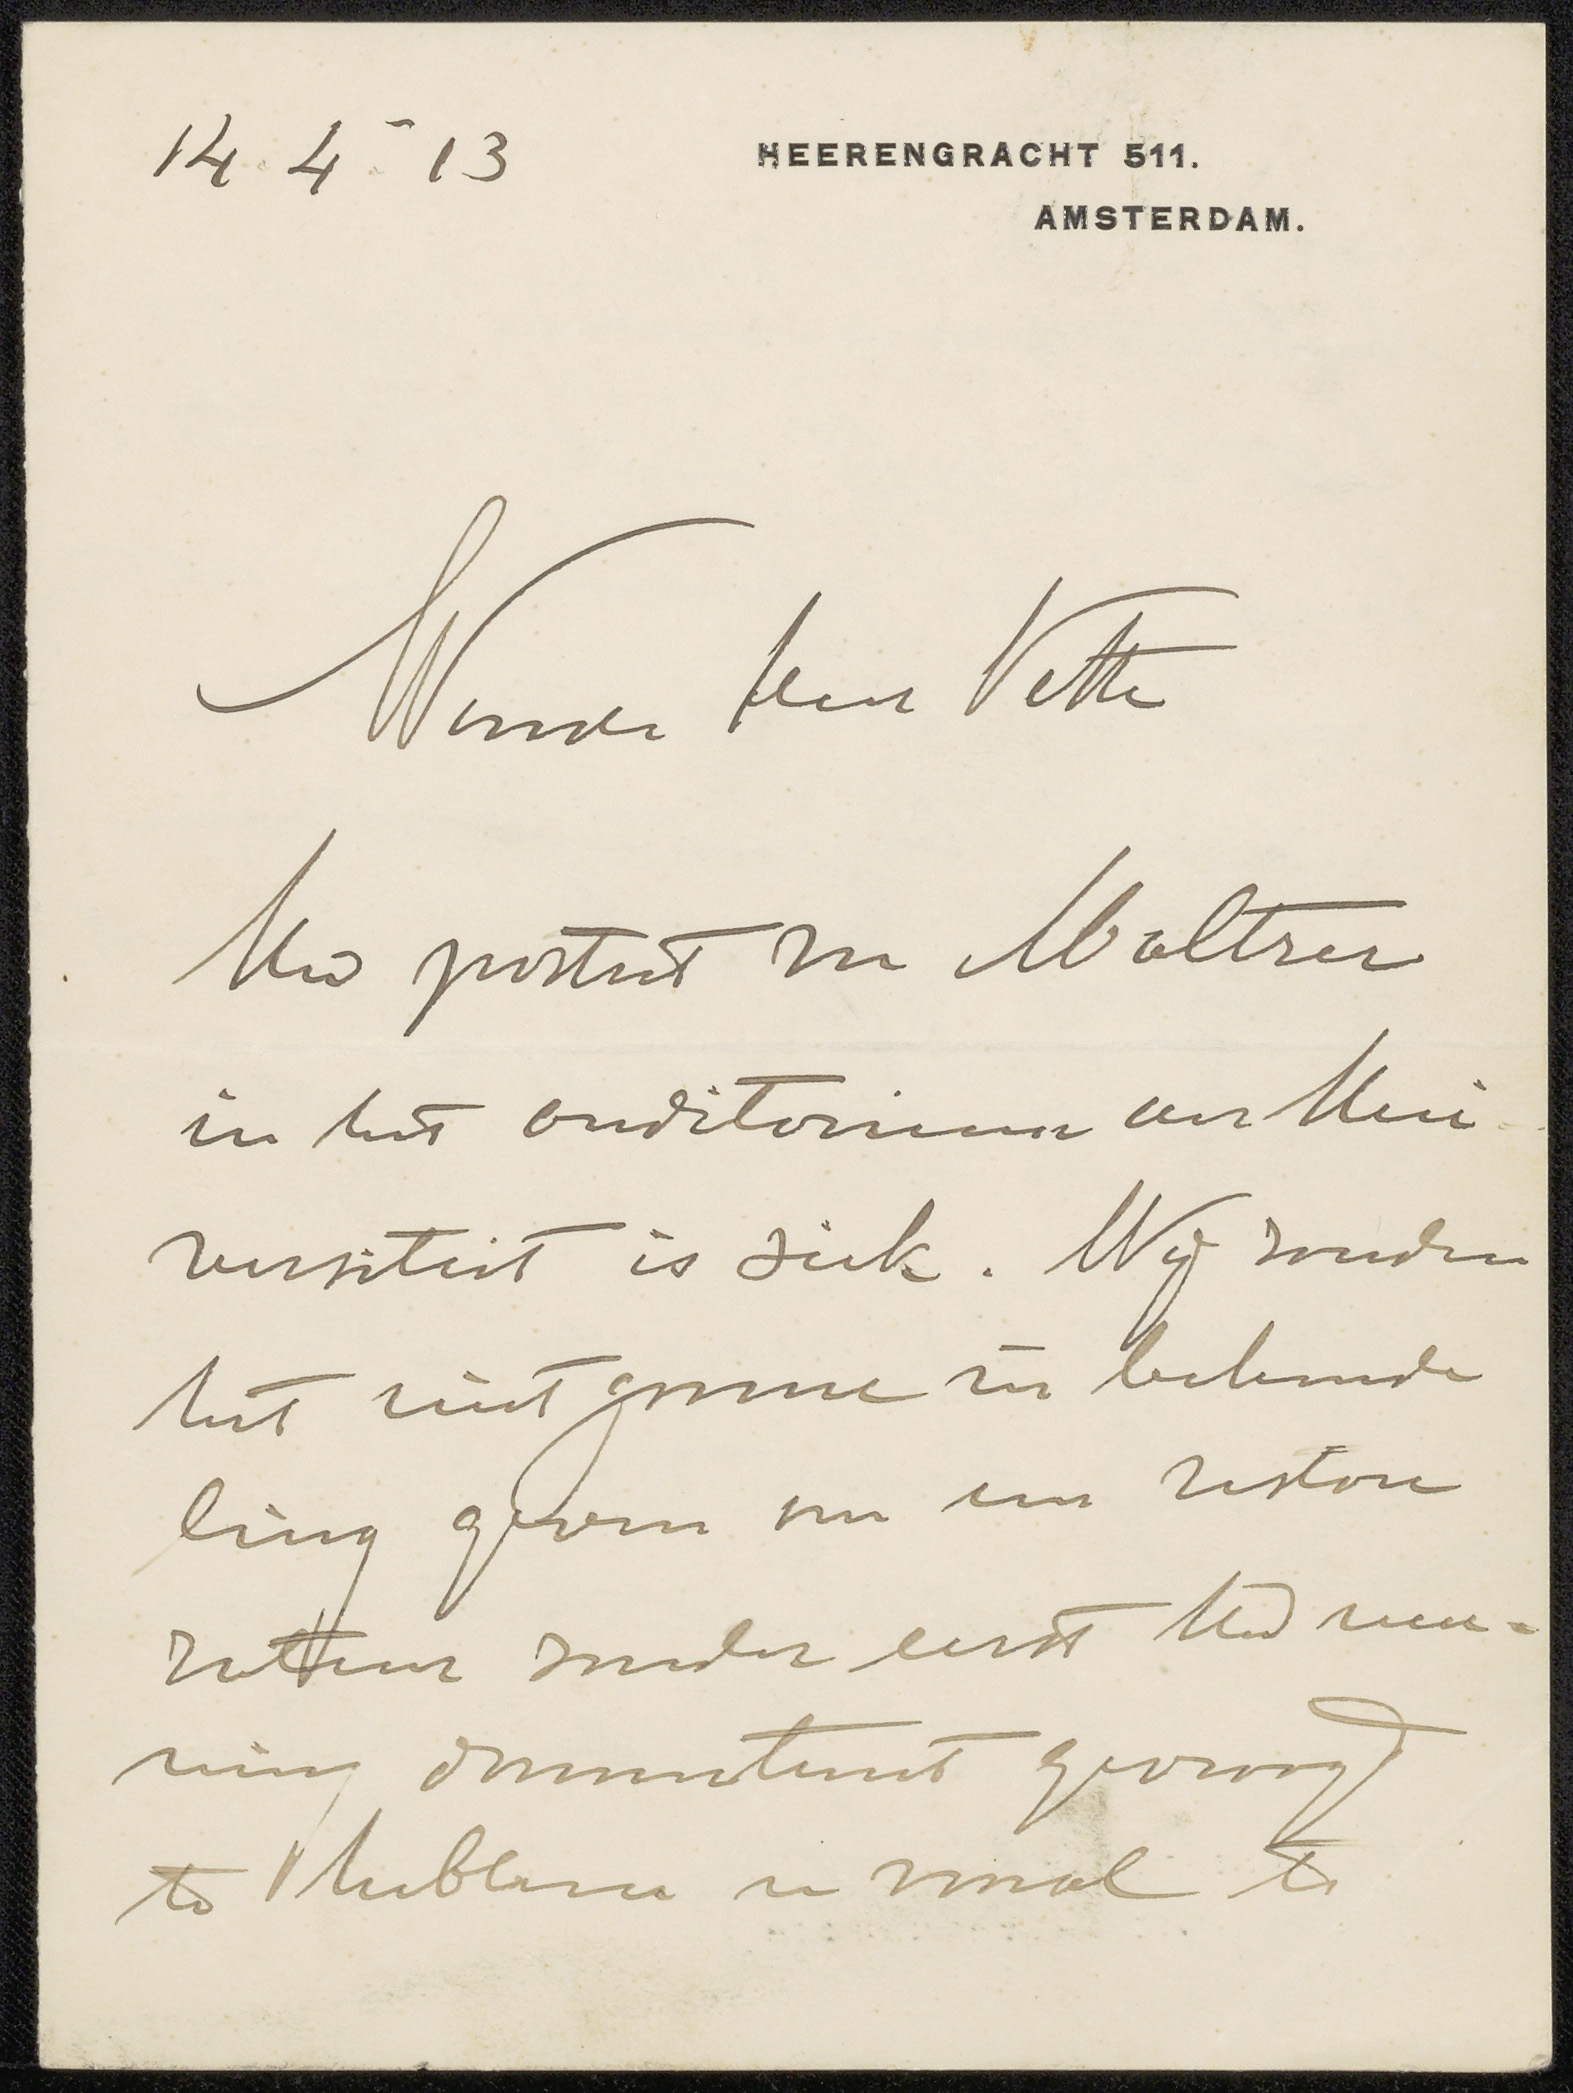 14.4-13
HEERENGRACHT 511.
AMSTERDAM.
Waarde Heer Veth
Uw portret van Moltzer
in het auditorium der Uni
versiteit is ziek. Wij zouden
het niet gaarne in behande
ling geven van een restau
rateur zonder eerst Uw mee-
ning daaromtrent gevraagd
te hebben en vooral te